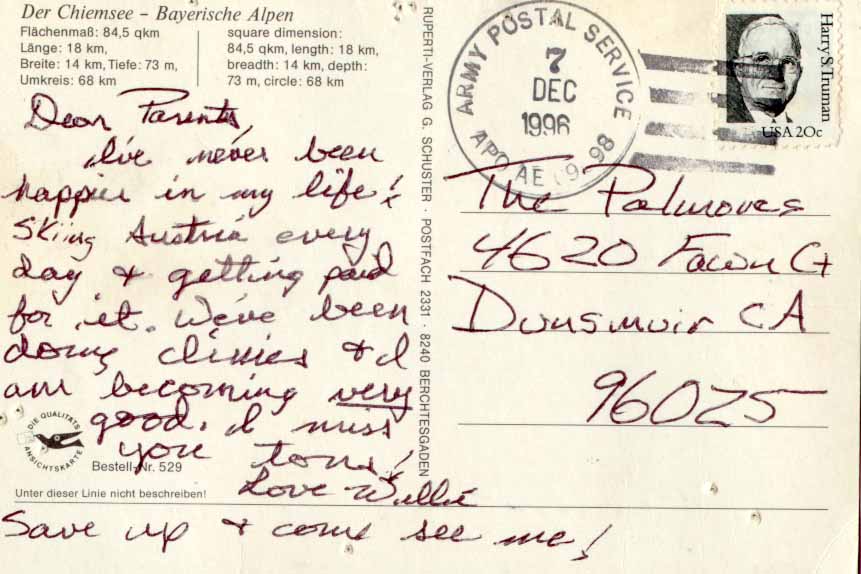 Der Chiemsee – Bayerische Alpen
Flächenmaß: 84,5 qkm
Länge: 18 km,
Breite: 14 km, Tiefe: 73 m,
Umkreis: 68 km
square dimension:
84,5 qkm, length: 18 km,
breadth: 14 km, depth:
73 m, circle: 68 km
Dear Parents,
I've never been
happier in my life!
Skiing Austria every
day & getting paid
for it. We've been
doing clinics & I
am becoming very
good. I miss
you tons!
Love Willie
Save up & come see me!
DIE QUALITÄTS
ANSICHTSKARTE
Bestell-Nr. 529
Unter dieser Linie nicht beschreiben!
RUPERTI-VERLAG G. SCHUSTER · POSTFACH 2331 · 8240 BERCHTESGADEN
ARMY POSTAL SERVICE
7
DEC
1996
APO AE 098
Harry S. Truman
USA 20c
The Palmoves
4620 Fawn Ct
Dunsmuir CA
96025